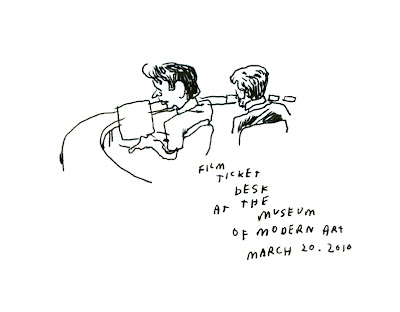 FILM
TICKET
DESK
AT THE
MUSEUM
OF MODERN ART
MARCH 20. 2010